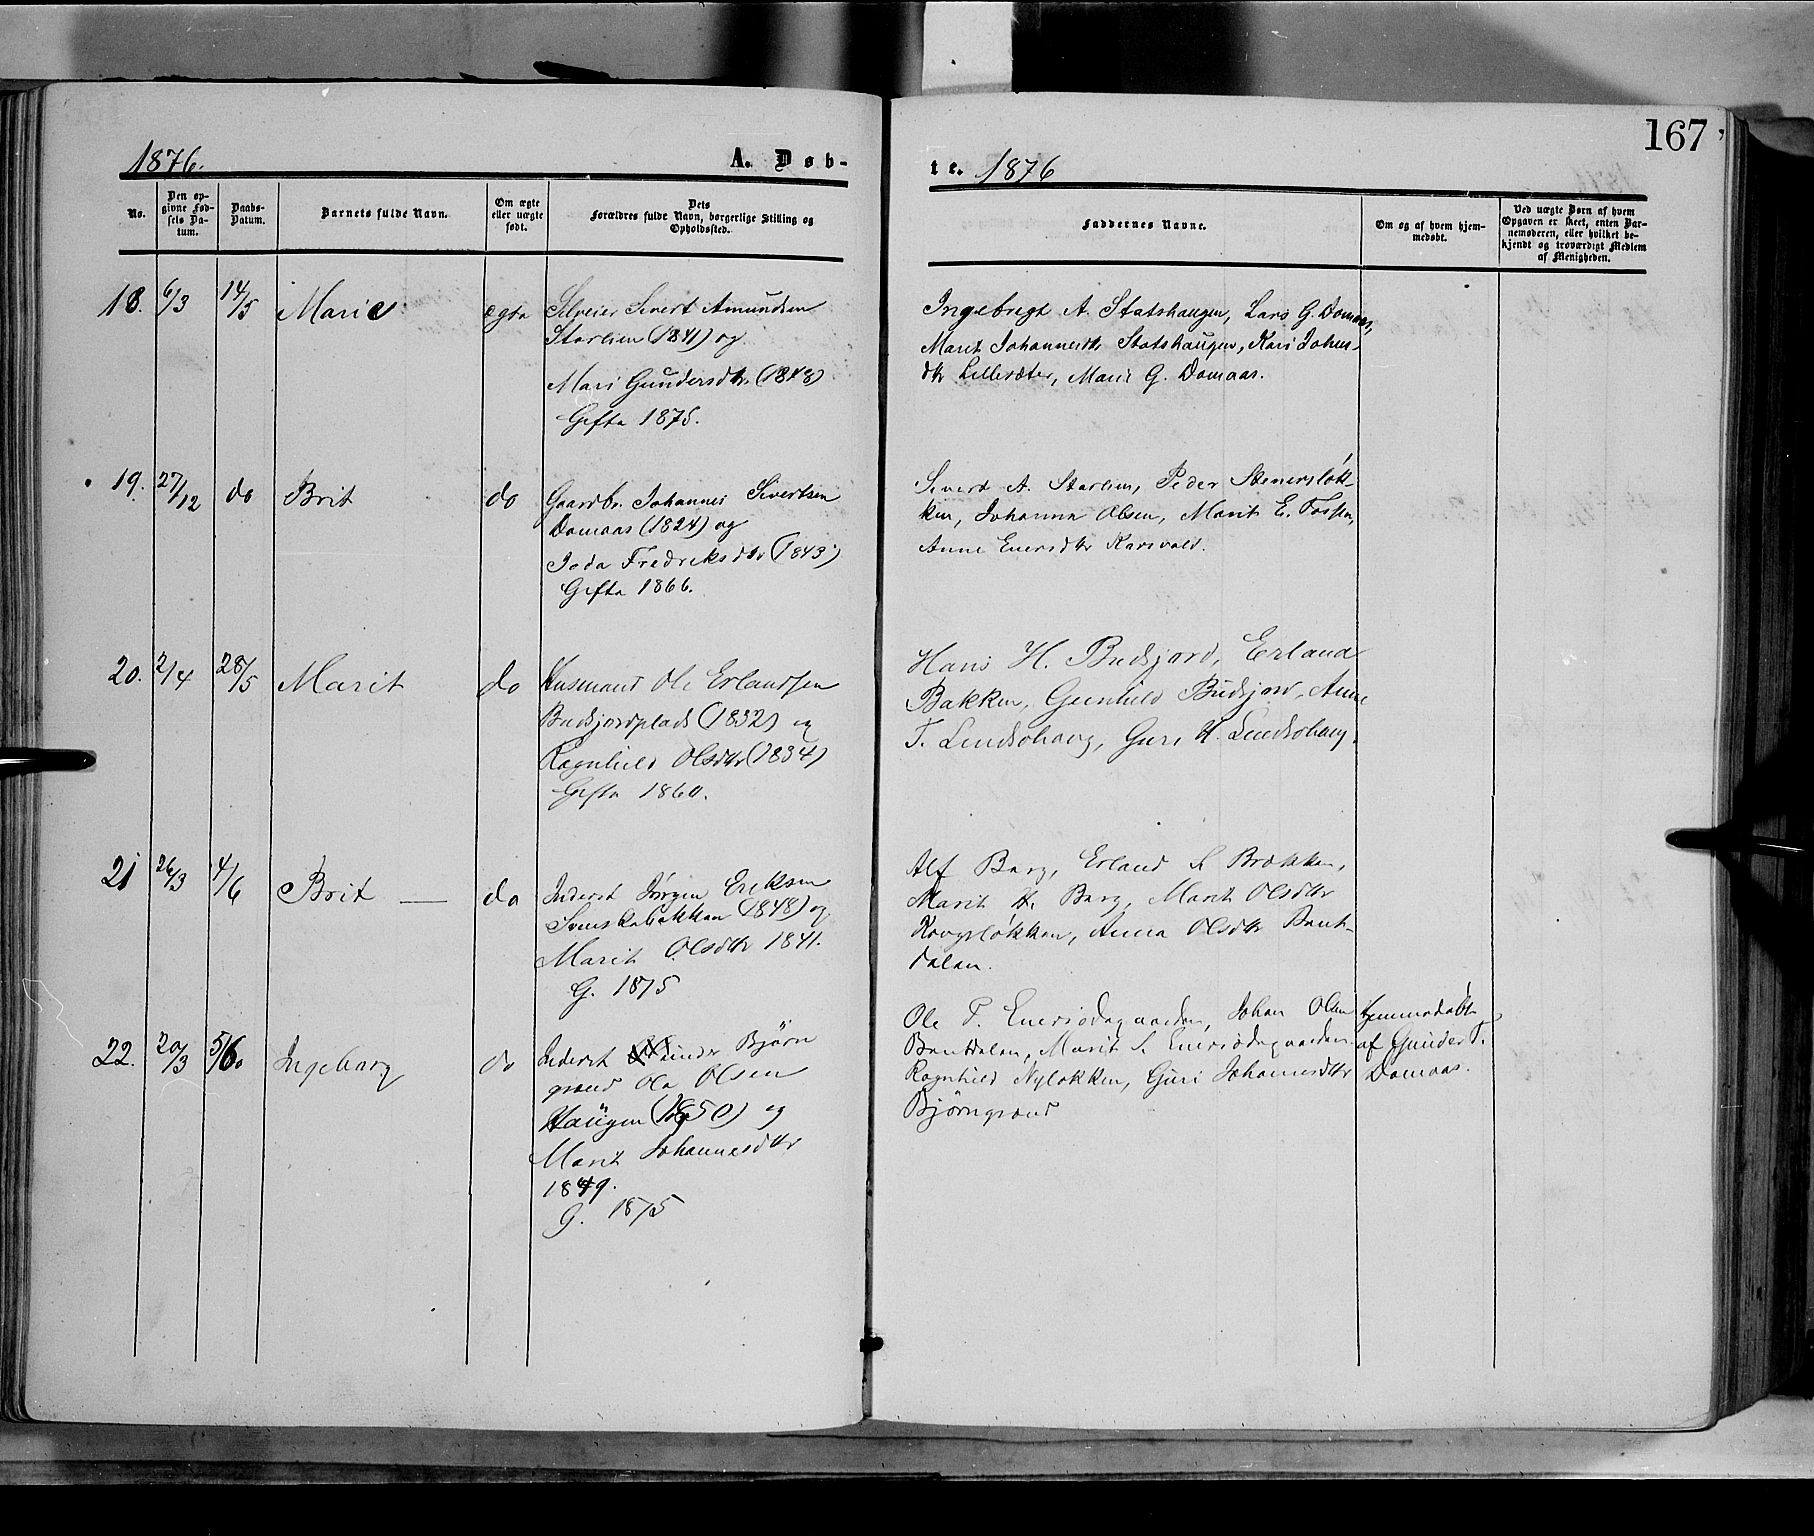 167
1876. A. Døb-
te. 1876
No.
Den op-
givne Fød-
sels Da-
tum.
Daabs-
Datum.
Barnets fulde Navn.
Om ægte
eller uægte
født.
Dets
Forældres fulde Navn, borgerlige Stilling og
Opholdssted.
Faddernes Navne.
Om og af hvem hjem-
medøbt.
Ved uægte Børn af hvem
Opgaven er skeet, enten Bar-
nemoderen, eller hvilket be-
kjendt og troværdigt Medlem
af Menigheden.
18. 6/3 14/5 Marie ægte
Sivert Amundsen
Starlien (1841) og
Mari Gundersdtr. (1848)
Gifte 1875.
Ingebrigt A. Statshaugen, Lars G. Domaas,
Marit Johannesdtr. Statshaugen, Kari Johns-
dtr Lillesæter, Marie G. Domaas.
19. 27/12 do Brit do
Gaardbr. Johannes Sivertsen
Domaas (1824) og
Fredriksdtr (1843)
Gifte 1866.
Sivert A. Starlien, Peder Stenersløk-
ken, Johanne Olsen, Marit E. Fossen,
Anne Enersdtr Karsvold.
20. 2/4 28/5 Marit do
Husmand Ole Erlandsen
Budsjordplads (1832) og
Ragnhild Olsdtr (1834)
Gifte 1860.
Hans H. Budsjord, Erland
Bakken, Gunhild Budsjord, Anne
T. Lindsøhaug, Guri H. Lindsøhaug.
21 26/3 4/6 Brit — do
Inderst Jørgen Eriksen
Svenskebakken (1848) og
Marit Olsdtr 1841.
G. 1875
Alf Barg, Erland Brækken,
Marit Barg, Marit Olsdtr
Kongsløkken, Anna Olsdtr Bent-
dalen.
22. 20/3 5/6 Ingeborg do
Inderst under Bjørn
grend Ole Olsen
Haugen (1850) og
Marit Johannesdtr
1849.
G. 1875
Ole T. Enersødegaarden, Johan Olsen
Bentdalen, Marit S. Enersødegaarden
Ragnhild Nyløkken, Guri Johannesdtr
Bjørngrend
Hjemmedøbt
af Gunder T.
Domaas.